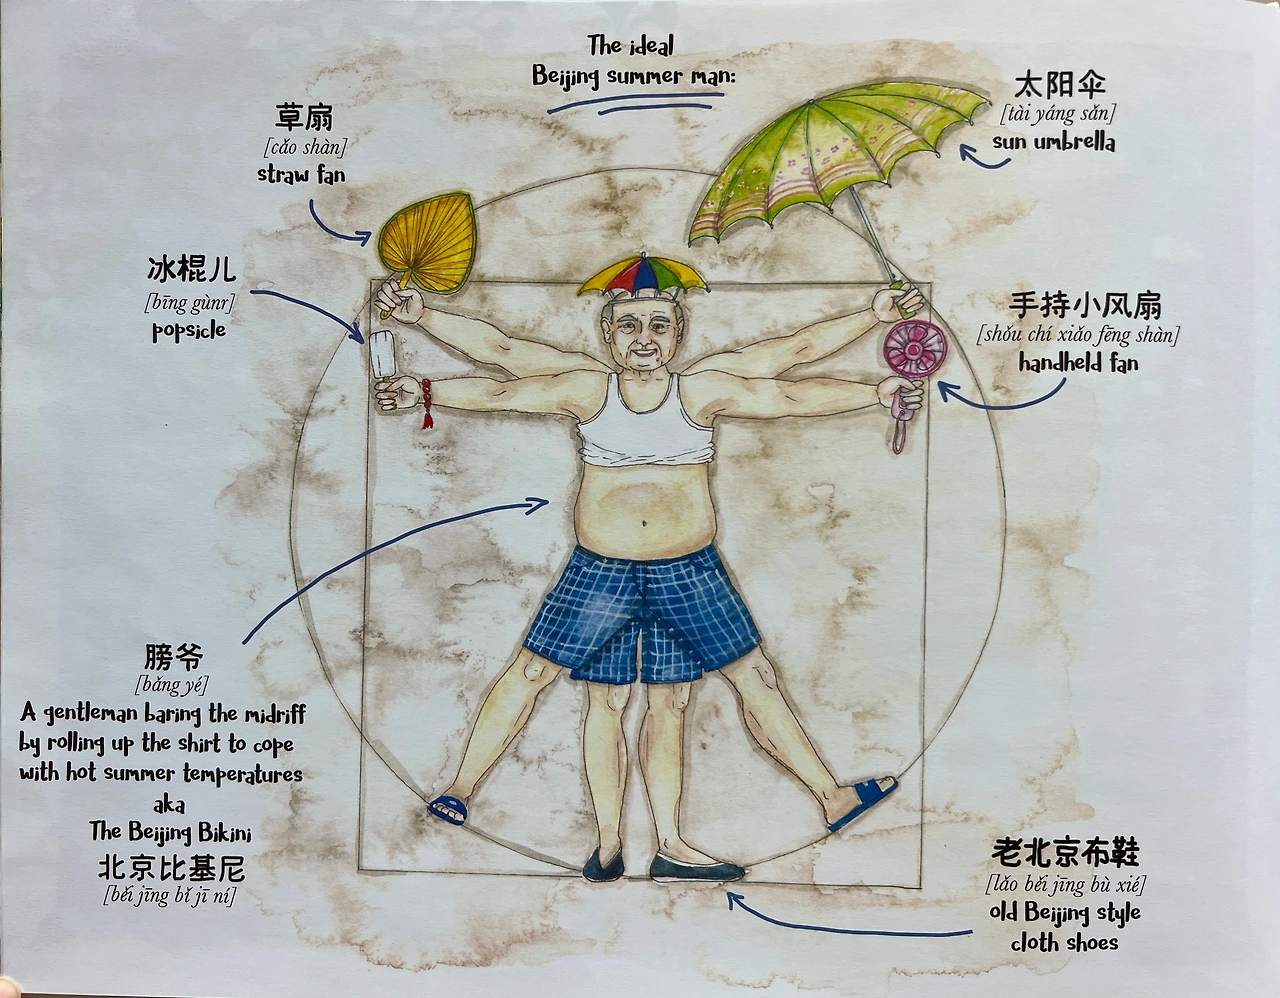 The ideal
Beijing summer man:
草扇
[cǎo shàn]
straw fan
太阳伞
[tài yáng sǎn]
sun umbrella
冰棍儿
[bīng gùnr]
popsicle
手持小风扇
[shǒu chí xiǎo fēng shàn]
handheld fan
膀爷
[bǎng yé]
A gentleman baring the midriff
by rolling up the shirt to cope
with hot summer temperatures
aka
The Beijing Bikini
北京比基尼
[běi jīng bǐ jī ní]
老北京布鞋
[lǎo běi jīng bù xié]
old Beijing style
cloth shoes